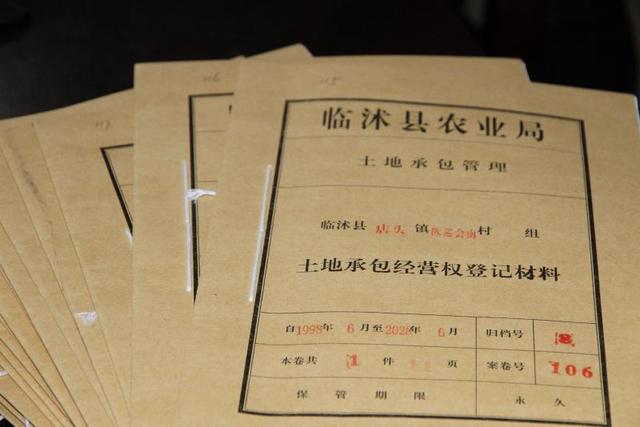 117
116
115
临沭县农业局
土地承包管理
临沭县 店头 镇 陈巡会南 村 组
土地承包经营权登记材料
自1998年 6月至2028年 6月 归档号 8
本卷共 1 件 页 案卷号 106
保管期限 永久